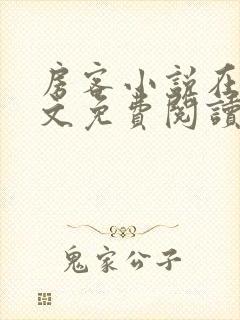 房客小説在
文免費閱讀
鬼家公子